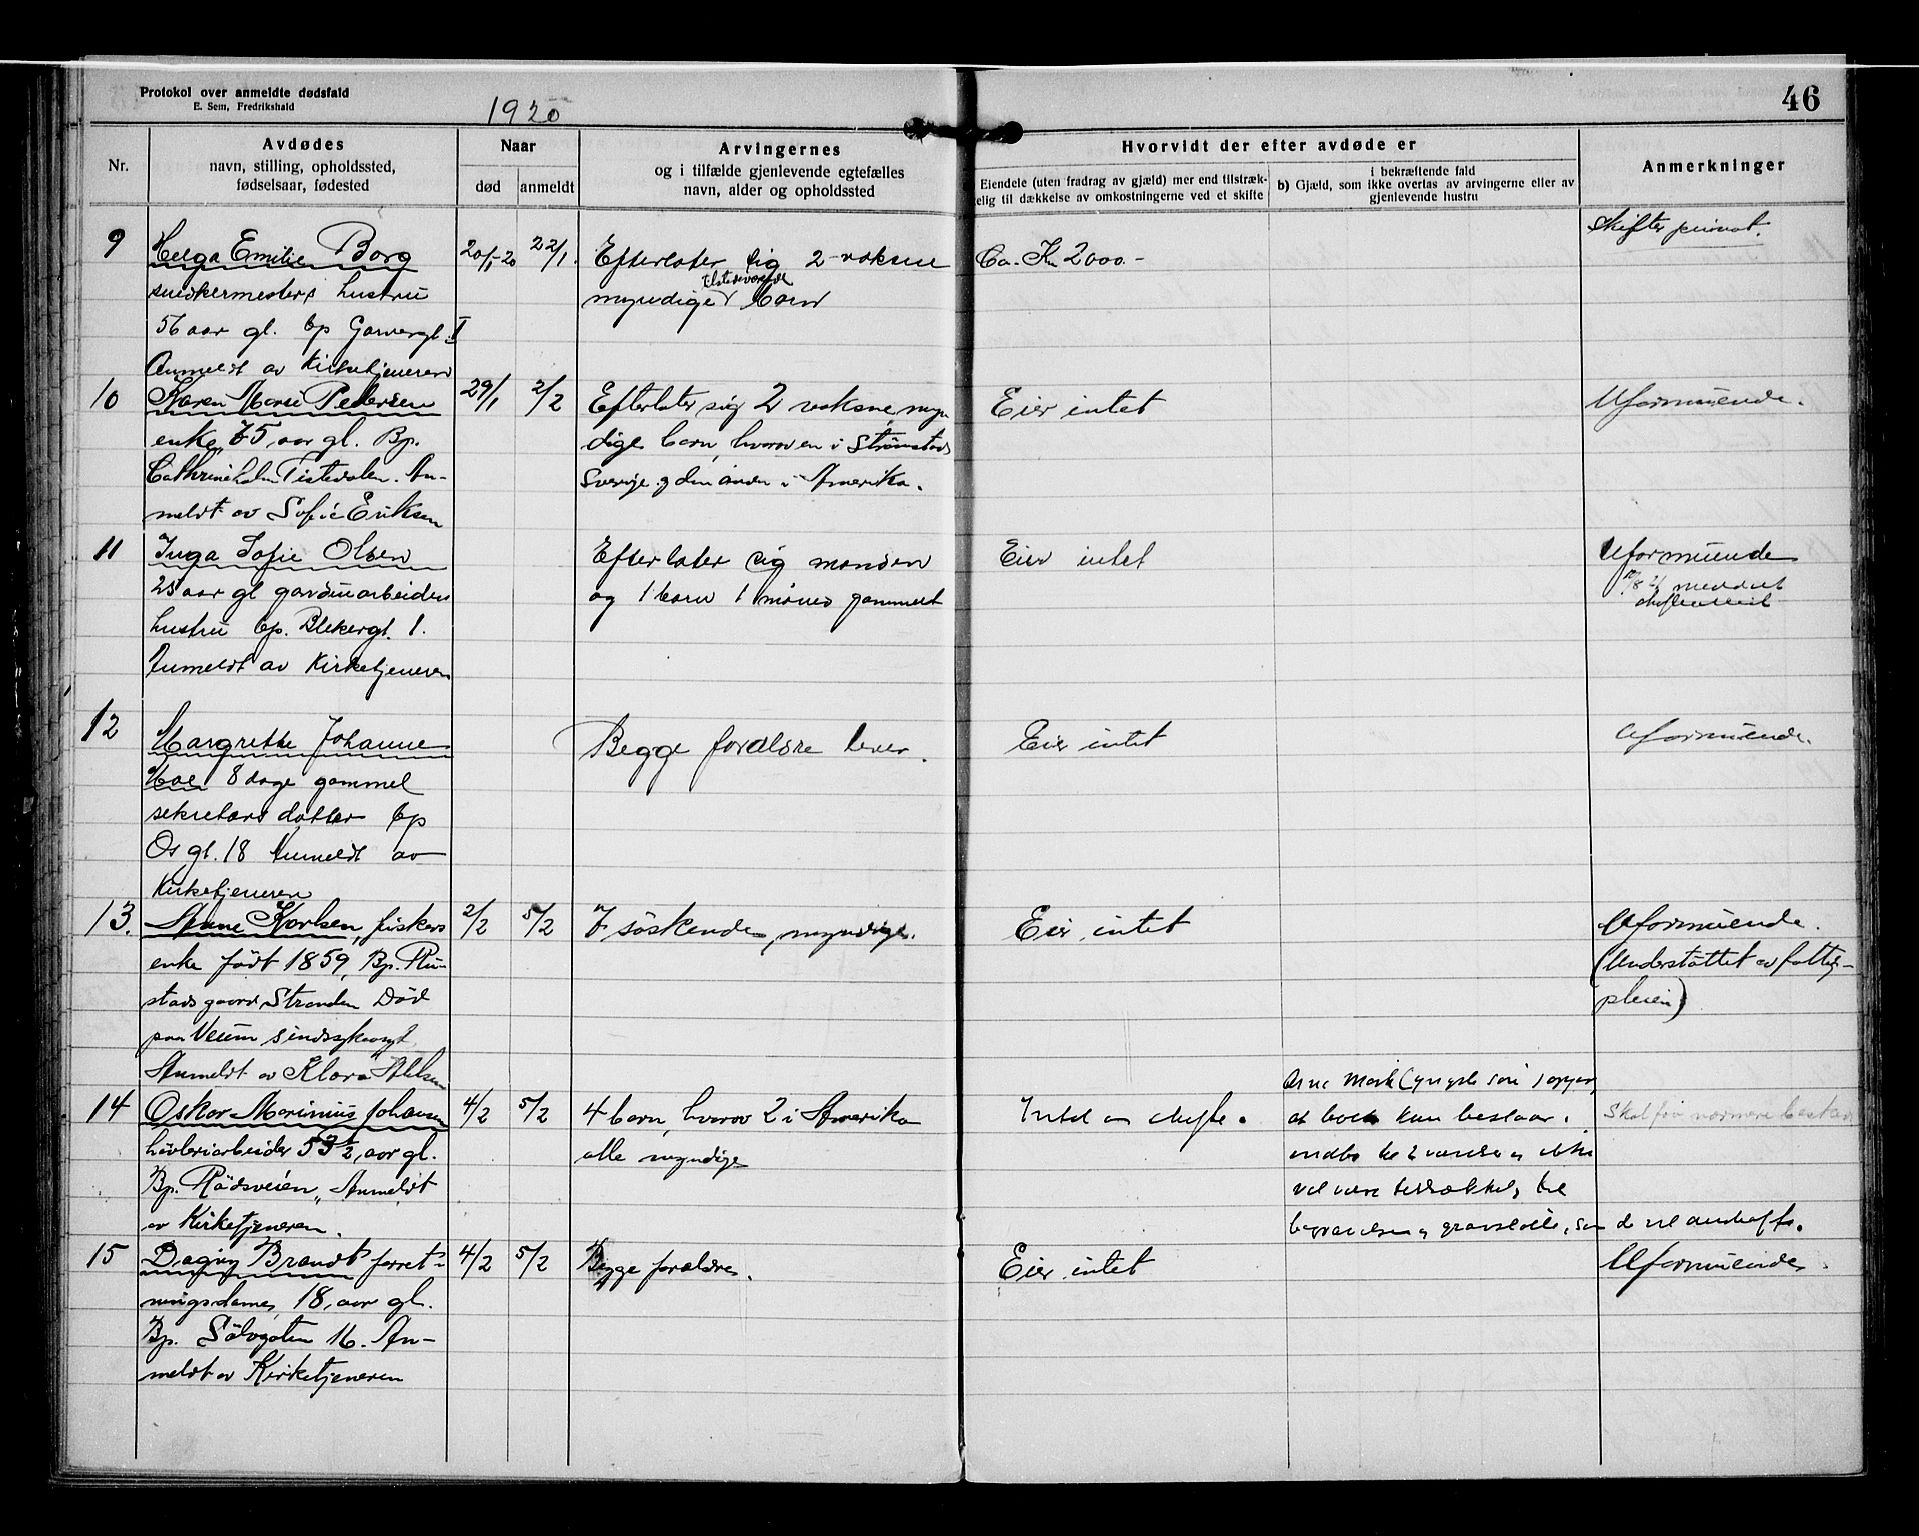 Protokol over anmeldte dødsfald
E. Sem, Fredrikshald
1920
46
Nr.
Avdødes
navn, stilling, opholdssted,
fødselsaar, fødested
Naar
død
anmeldt
Arvingernes
og i tilfælde gjenlevende egtefælles
navn, alder og opholdssted
Hvorvidt der efter avdøde er
Eiendele (uten fradrag av gjæld) mer end tilstræk-
kelig til dækkelse av omkostningerne ved et skifte
i bekræftende fald
b) Gjæld, som ikke overtas av arvingerne eller av
gjenlevende hustru
Anmerkninger
9
Helga Emilie Borg
snedkermesters hustru
56 aar gl. bp Garvergt. I
Anmeldt av Kirketjeneren
20/1-20
22/1.
Efterlater sig 2 voksne
tilstedeværende
myndige barn
Ca. Kr 2000.-
Skiftes privat.
10
Karen Marie Pedersen
enke, 75, aar gl. Bp.
Cathrineholm Tistedalen. An-
meldt av Sofie Eriksen
29/1
2/2
Efterlater sig 2 voksne, myn-
dige barn, hvorav en i Strømstad
Sverige og den anden i Amerika.
Eier intet
Uformuende.
11
Inga Sofie Olsen
25 aar gl gardinarbeiders
hustru bp. Blekergt. 1.
Anmeldt av Kirketjeneren
Efterlater sig manden
og 1 barn 1 maned gammelt
Eier intet
Uformuende
meddelt
12
Margrethe Johanne
Moe 8 dage gammel
sekretærs datter bp
Os gt. 18 Anmeldt av
Kirketjeneren
Begge forældre lever.
Eier intet
Uformuende.
13.
Anne Karlsen, fiskers
enke født 1859, Bp. Ru-
stadsgaard, Stranden Død
paa Veum sindssykeasyl
Anmeldt av Klara
2/2
5/2
7 søskende, myndige.
Eier intet
Uformuende.
(Understøttet av fattig-
pleien)
14
Oskar Marinius Johansen
høvleriarbeider 53½, aar gl.
Bp. Rødsveien, Anmeldt
av Kirketjeneren.
4/2
5/2
4 barn, hvorav 2 i Amerika
alle myndige
Intet av skifte.
Arne Mark (yngste søn) opgir
at boet kun bestaar i
indbo til 2 værelser og ikke
vil være tilstrækkelig til
begravelsen og gravstøtte, som de vil anskaffe.
Skal før nærmere
15
Dagny Brandt forret-
ningsdame, 18, aar gl.
Bp. Sølvgaten 16. An-
meldt av Kirketjeneren
4/2
5/2
Begge forældre.
Eier intet
Uformuende.